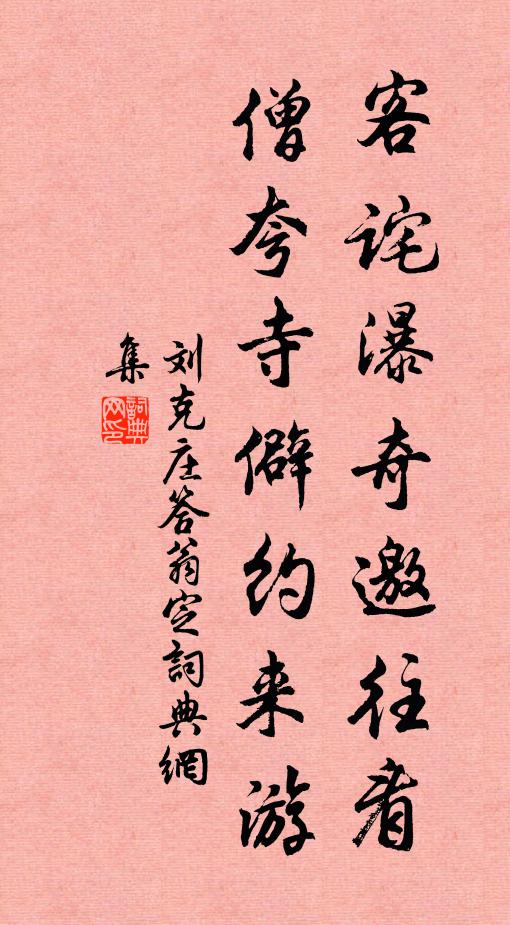 客诧瀑奇邀往看
僧夸寺僻约来游
刘克庄答翁定詞典網
集
詞典
网印